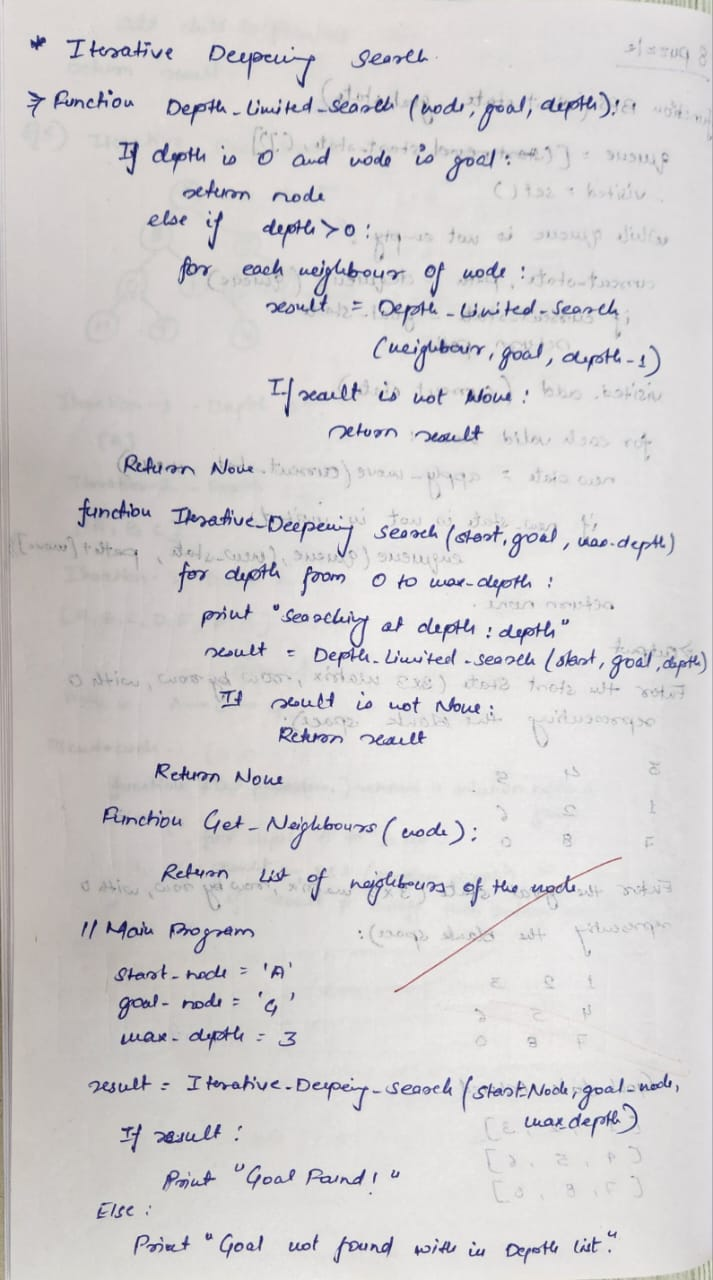 * Iterative Deepening Search.
⇒ Function Depth-Limited-Search (node, goal, depth):
If depth is 0 and node is goal:
return node
else if depth > 0:
for each neighbour of node:
result = Depth-Limited-Search
(neighbour, goal, depth-1)
If result is not None:
return result
Return None.
function Iterative-Deepening Search (start, goal, max-depth)
for depth from 0 to max-depth:
print "Searching at depth: depth"
result = Depth-Limited-search (start, goal, depth)
If result is not None:
Return result
Return None
Function Get-Neighbours (node):
Return List of neighbours of the node
// Main Program
Start-node = 'A'
goal-node = 'G'
max-depth = 3
result = Iterative-Deepening-search (start-Node, goal-node,
max-depth)
If result:
Print "Goal Found!"
Else:
Print "Goal not found with in Depth list."